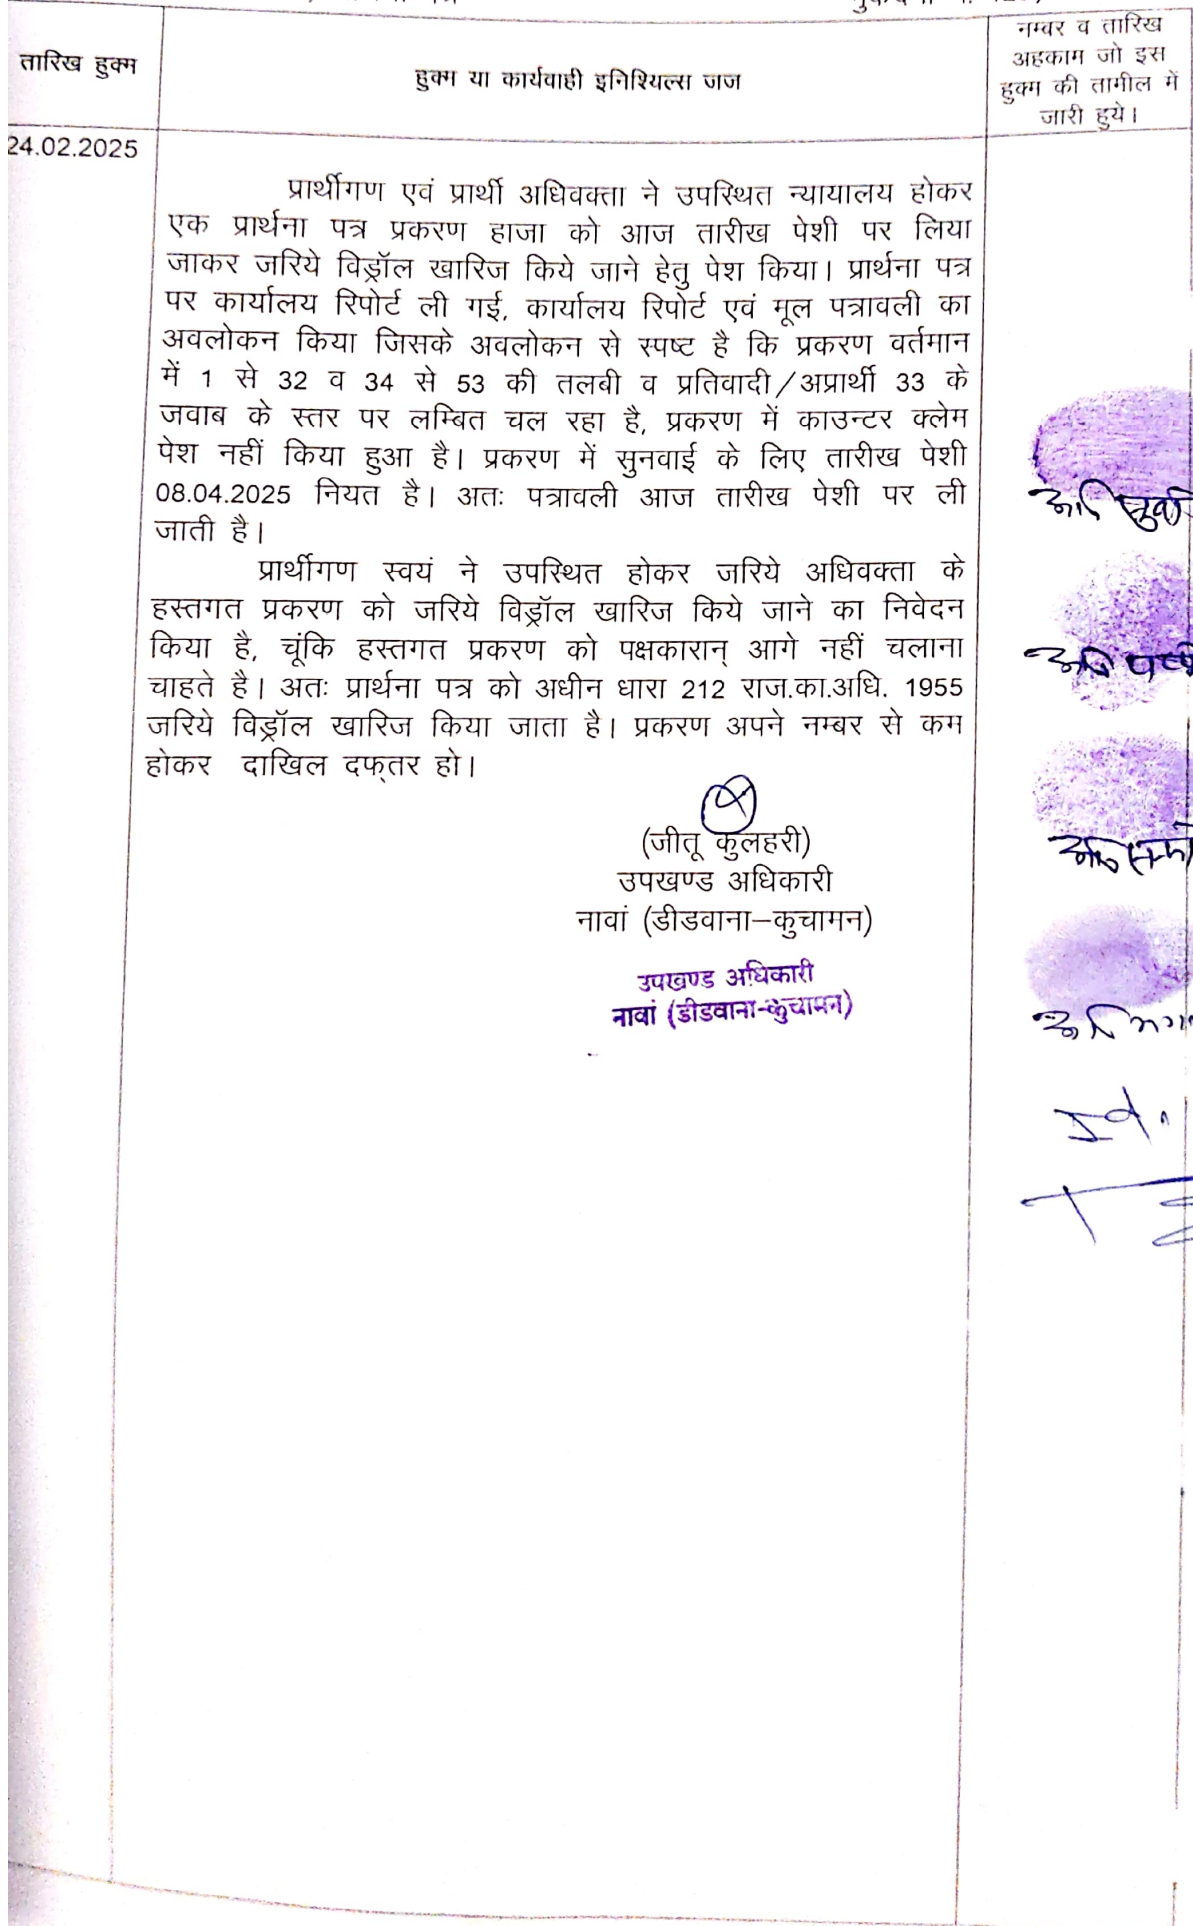 तारिख हुक्म
हुक्म या कार्यवाही इनिशियल्स जज
नम्वर व तारिख
अहकाम जो इस
हुक्म की तामील में
जारी हुये।
24.02.2025
प्रार्थीगण एवं प्रार्थी अधिवक्ता ने उपस्थित न्यायालय होकर
एक प्रार्थना पत्र प्रकरण हाजा को आज तारीख पेशी पर लिया
जाकर जरिये विड्रॉल खारिज किये जाने हेतु पेश किया। प्रार्थना पत्र
पर कार्यालय रिपोर्ट ली गई, कार्यालय रिपोर्ट एवं मूल पत्रावली का
अवलोकन किया जिसके अवलोकन से स्पष्ट है कि प्रकरण वर्तमान
में 1 से 32 व 34 से 53 की तलबी व प्रतिवादी/अप्रार्थी 33 के
जवाब के स्तर पर लम्बित चल रहा है, प्रकरण में काउन्टर क्लेम
पेश नहीं किया हुआ है। प्रकरण में सुनवाई के लिए तारीख पेशी
08.04.2025 नियत है। अतः पत्रावली आज तारीख पेशी पर ली
जाती है।
प्रार्थीगण स्वयं ने उपस्थित होकर जरिये अधिवक्ता के
हस्तगत प्रकरण को जरिये विड्रॉल खारिज किये जाने का निवेदन
किया है, चूंकि हस्तगत प्रकरण को पक्षकारान् आगे नहीं चलाना
चाहते है। अतः प्रार्थना पत्र को अधीन धारा 212 राज.का.अधि. 1955
जरिये विड्रॉल खारिज किया जाता है। प्रकरण अपने नम्बर से कम
होकर दाखिल दफ्तर हो।
(जीतू कुलहरी)
उपखण्ड अधिकारी
नावां (डीडवाना–कुचामन)
उपखण्ड अधिकारी
नावां (डीडवाना-कुचामन)